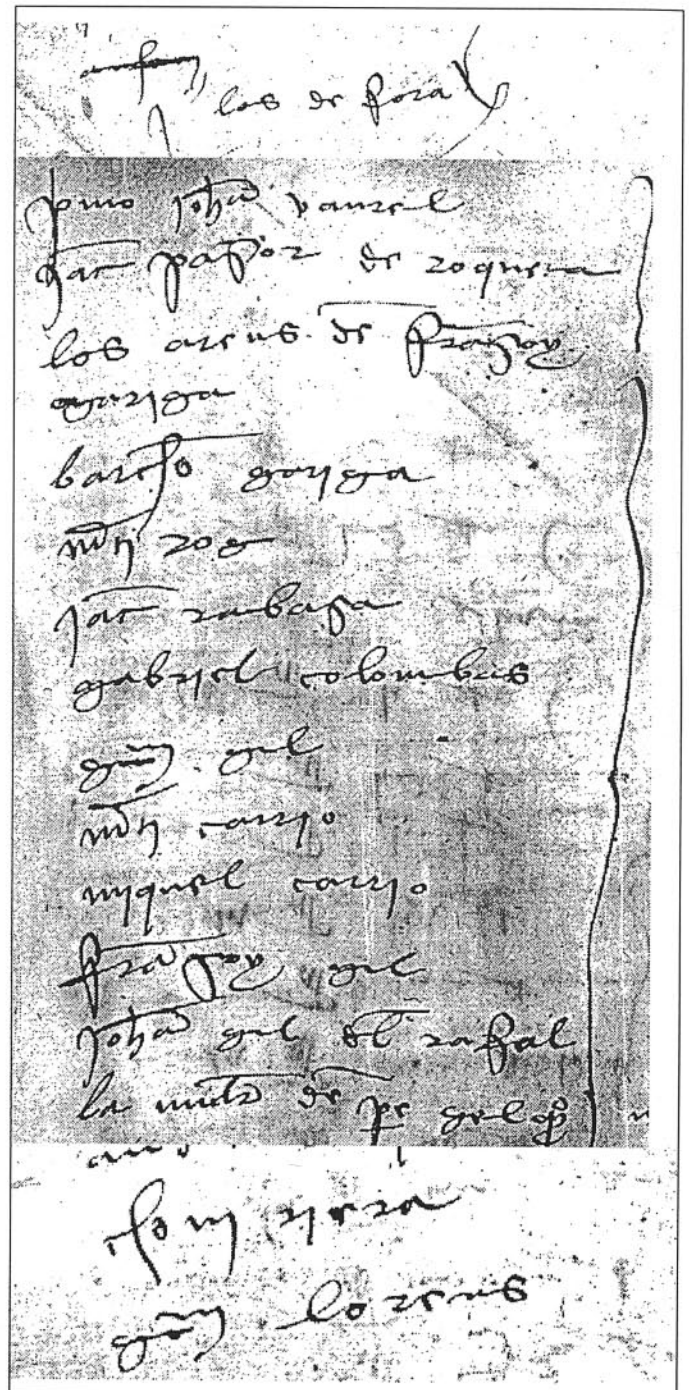 los de fora
pmo joha vanrel
jac pastor de roquera
los areus de frasoy
gariga
bartho gariga
mti rog
jac rabasa
gabriel colombas
gum gil
mti carrio
miquel carrio
frasoy gil
joha gil del rafal
la mulr de pe
riera
gum lorens